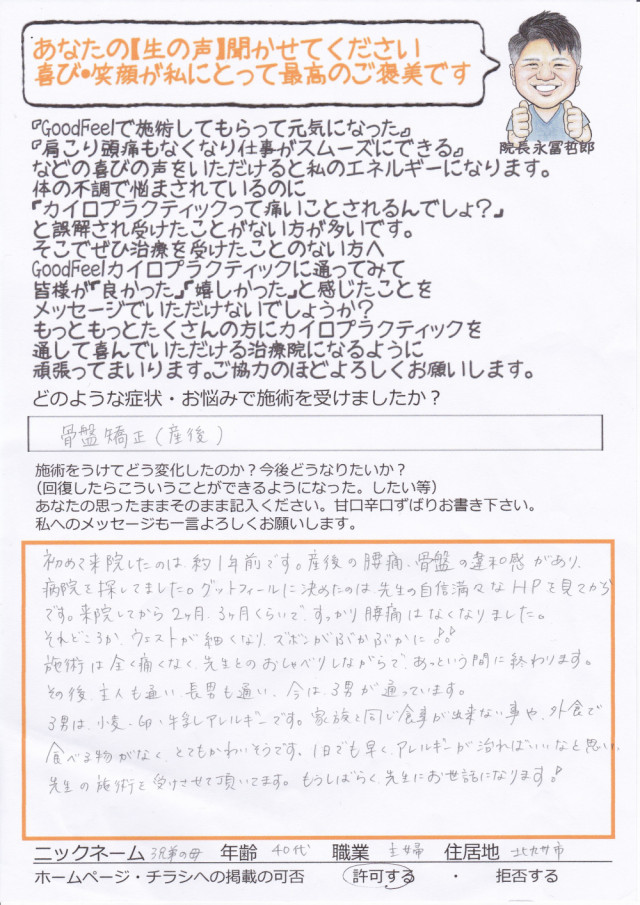 あなたの【生の声】聞かせてください
喜び・笑顔が私にとって最高のご褒美です
院長永冨哲郎
『GoodFeelで施術してもらって元気になった』
『肩こり頭痛もなくなり仕事がスムーズにできる』
などの喜びの声をいただけると私のエネルギーになります。
体の不調で悩まされているのに
「カイロプラクティックって痛いことされるんでしょ？」
と誤解され受けたことがない方が多いです。
そこでぜひ治療を受けたことのない方へ
GoodFeelカイロプラクティックに通ってみて
皆様が「良かった」「嬉しかった」と感じたことを
メッセージでいただけないでしょうか？
もっともっとたくさんの方にカイロプラクティックを
通して喜んでいただける治療院になるように
頑張ってまいります。ご協力のほどよろしくお願いします。
どのような症状・お悩みで施術を受けましたか？
骨盤矯正（産後）
施術をうけてどう変化したのか？今後どうなりたいか？
（回復したらこういうことができるようになった。したい等）
あなたの思ったままそのまま記入ください。甘口辛口ずばりお書き下さい。
私へのメッセージも一言よろしくお願いします。
初めて来院したのは、約1年前です。産後の腰痛、骨盤の違和感があり、
病院を探してました。グットフィールに決めたのは、先生の自信満々なHPを見てから
です。来院してから2ヶ月、3ヶ月くらいで、すっかり腰痛はなくなりました。
それどころか、ウェストが細くなり、ズボンがぶかぶかに!!
施術は全く痛くなく、先生とのおしゃべりしながらで、あっという間に終わります。
その後、主人も通い、長男も通い、今は、3男が通っています。
3男は、小麦・卵・牛乳アレルギーです。家族と同じ食事が出来ない事や、外食で
食べる物がなく、とてもかわいそうです。1日でも早く、アレルギーが治ればいいなと思い、
先生の施術を受けさせて頂いてます。もうしばらく、先生にお世話になります!
ニックネーム 3兄弟の母 年齢 40代 職業 主婦 住居地 北九州市
ホームページ・チラシへの掲載の可否 許可する ・ 拒否する